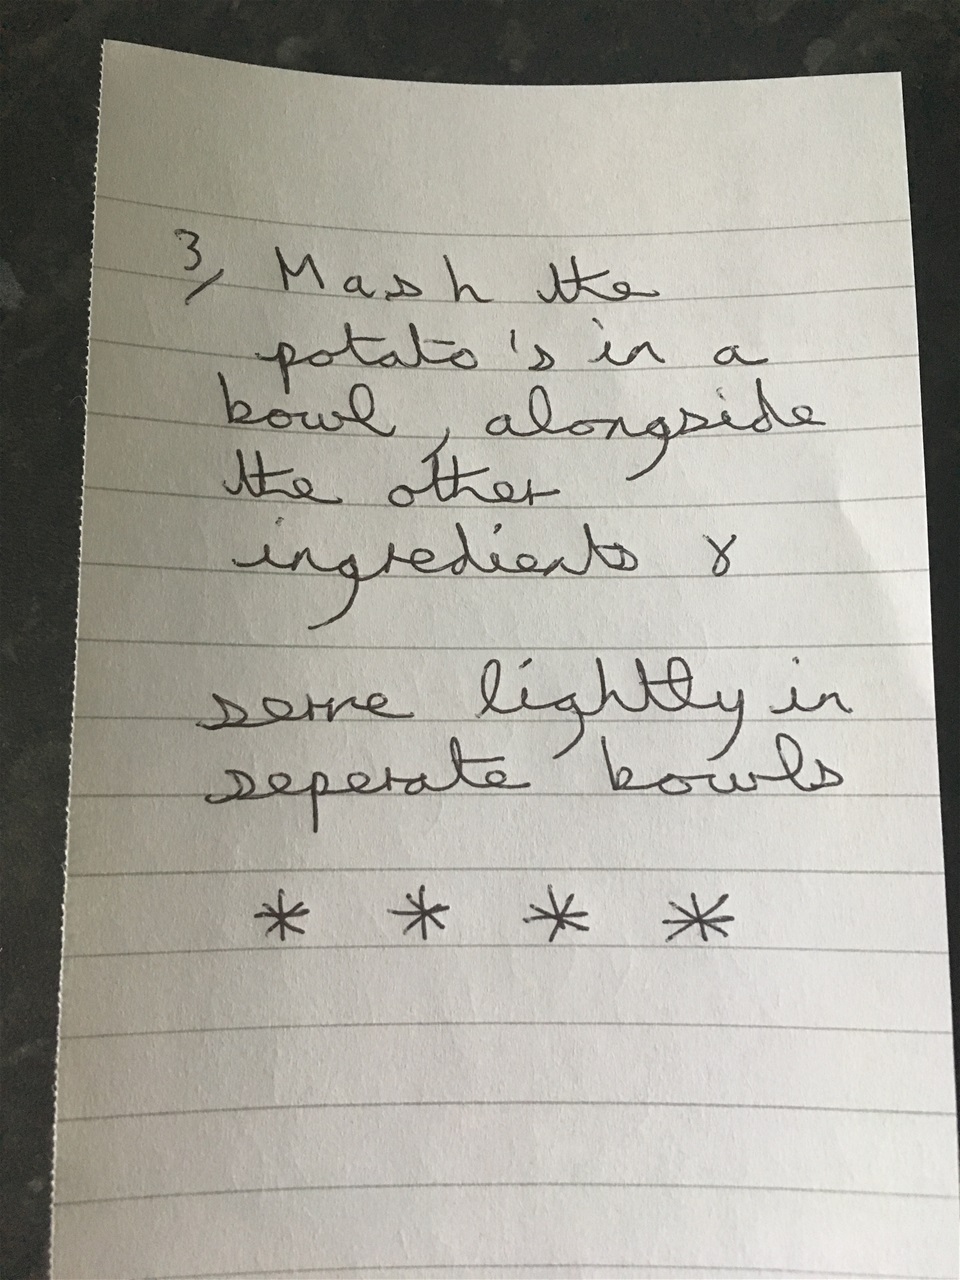 3, Mash the
potato's in a
bowl, alongside
the other
ingredients &
serve lightly in
seperate bowls
* * * *